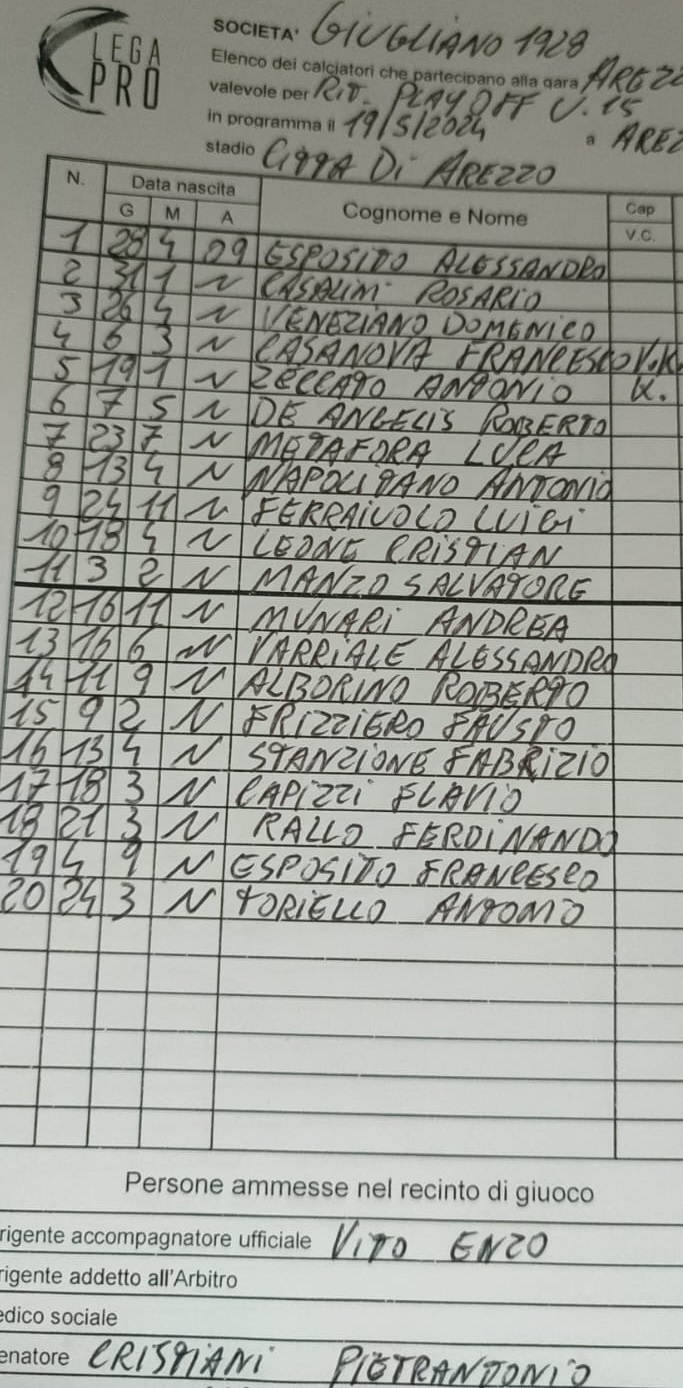 LEGA
PRO
SOCIETA' GIUGLIANO 1928
Elenco dei calciatori che partecipano alla gara AREZZ
valevole per RIT. PLAY OFF U.15
in programma il 19/5/2024 a AREZ
stadio CITTA DI AREZZO
N. Data nascita Cognome e Nome Cap
G M A V.C.
1 28 4 09 ESPOSITO ALESSANDRO
2 31 1 N CASALINI ROSARIO
3 26 4 N VENEZIANO DOMENICO
4 6 3 N CASANOVA FRANCESCO V.K.
5 19 1 N ZECCATO ANTONIO K.
6 7 5 N DE ANGELIS ROBERTO
7 23 7 N METAFORA LUCA
8 13 4 N NAPOLITANO ANTONIO
9 24 11 N FERRAIUOLO LUIGI
10 18 4 N LEONE CRISTIAN
11 3 2 N MANZO SALVATORE
12 16 11 N MUNARI ANDREA
13 16 6 N VARRIALE ALESSANDRO
14 11 9 N ALBORINO ROBERTO
15 9 2 N FRIZZIERO FAUSTO
16 13 4 N STANZIONE FABRIZIO
17 18 3 N CAPIZZI FLAVIO
18 21 3 N RALLO FERDINANDO
19 4 9 N ESPOSITO FRANCESCO
20 24 3 N TORIELLO ANTONIO
Persone ammesse nel recinto di giuoco
rigente accompagnatore ufficiale VITO ENZO
rigente addetto all'Arbitro
edico sociale
enatore CRISTIANI PIETRANTONIO